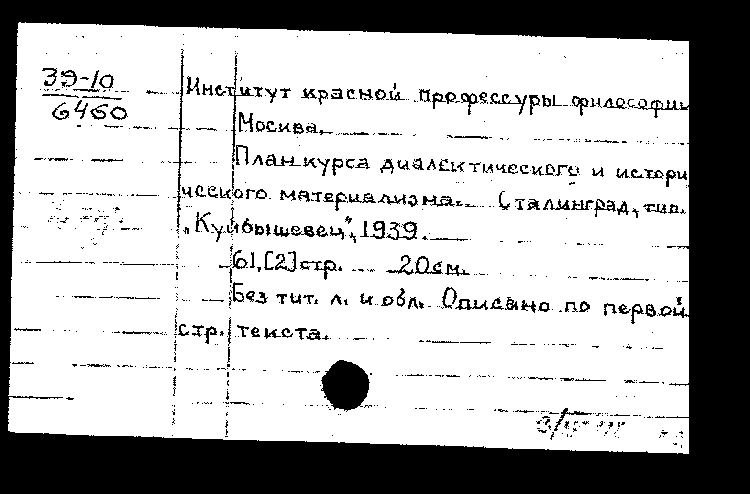 39-10
6460
Институт красной профессуры философии
Москва.
План курса диалектического и истори
ческого материализма. Сталинград, тип.
„Куйбышевец", 1939.
61,[2]стр. 20см.
Без тит. л. и обл. Описано по первой
стр. текста.